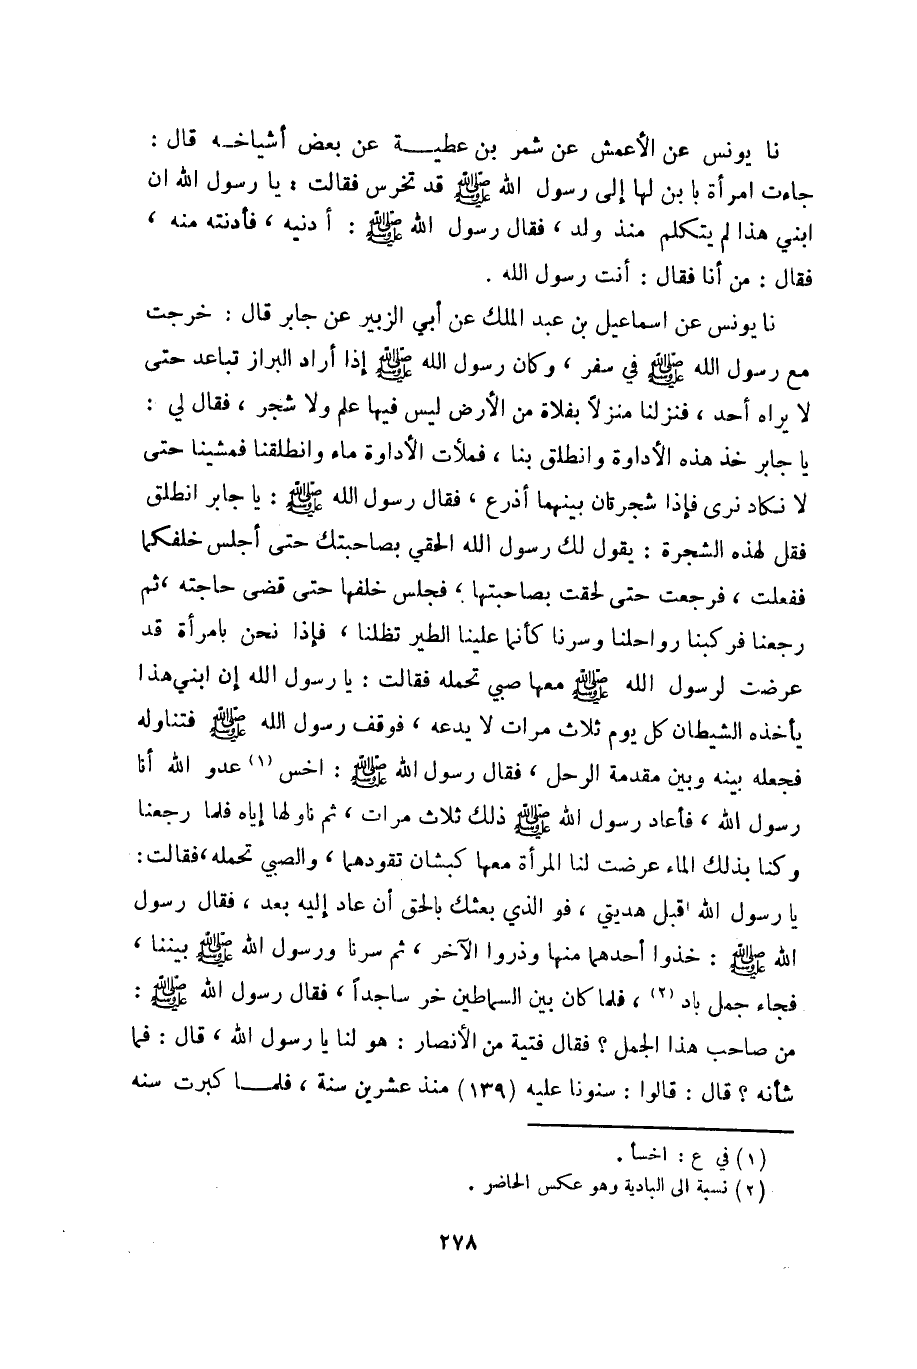 نا يونس عن الأعمش عن شمر بن عطيـــة عن بعض أشياخـه قال :
جاءت امرأة با بن لها إلى رسول الله ﷺ قد تخرس فقالت : يا رسول الله ان
ابني هذا لم يتكلم منذ ولد ، فقال رسول الله ﷺ : أ دنيه ، فأدنته منه ،
فقال : من أنا فقال : أنت رسول الله .
نا يونس عن اسماعيل بن عبد الملك عن أبي الزبير عن جابر قال : خرجت
مع رسول الله ﷺ في سفر ، وكان رسول الله ﷺ إذا أراد البراز تباعد حتى
لا يراه أحد ، فنزلنا منزلاً بفلاة من الأرض ليس فيها علم ولا شجر ، فقال لي :
يا جابر خذ هذه الأداوة وانطلق بنا ، فملأت الأداوة ماء وانطلقنا فمشينا حتى
لا نكاد نرى فإذا شجرتان بينهما أذرع ، فقال رسول الله ﷺ : يا جابر انطلق
فقل لهذه الشجرة : يقول لك رسول الله الحقي بصاحبتك حتى أجلس خلفكما
ففعلت ، فرجعت حتى لحقت بصاحبتها ، فجلس خلفها حتى قضى حاجته ،ثم
رجعنا فركبنا رواحلنا وسرنا كأنما علينا الطير تظلنا ، فإذا نحن بامرأة قد
عرضت لرسول الله ﷺ معها صبي تحمله فقالت : يا رسول الله إن ابني هذا
يأخذه الشيطان كل يوم ثلاث مرات لا يدعه ، فوقف رسول الله ﷺ فتناوله
فجعله بينه وبين مقدمة الرحل ، فقال رسول الله ﷺ : اخس (١) عدو الله أنا
رسول الله ، فأعاد رسول الله ﷺ ذلك ثلاث مرات ، ثم ناولها إياه فلما رجعنا
وكنا بذلك الماء عرضت لنا المرأة معها كبشان تقودهما ، والصبي تحمله،فقالت:
يا رسول الله اقبل هديتي ، فو الذي بعثك بالحق أن عاد إليه بعد ، فقال رسول
الله ﷺ : خذوا أحدهما منها وذروا الآخر ، ثم سرنا ورسول الله ﷺ بيننا ،
فجاء جمل باد (٢) ، فلما كان بين السماطين خر ساجداً ، فقال رسول الله ﷺ :
من صاحب هذا الجمل ؟ فقال فتية من الأنصار : هو لنا يا رسول الله ، قال : فما
شأنه ؟ قال : قالوا : سنونا عليه (١٣٩) منذ عشرين سنة ، فلمـــا كبرت سنه
(١) في ع : اخسأ .
(٢) نسبة الى البادية وهو عكس الحاضر .
٢٧٨